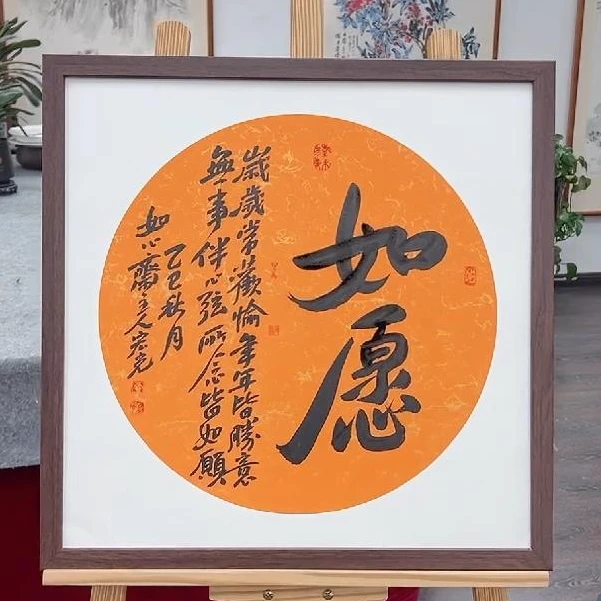 如愿
歲歲常歡愉年年皆勝意
無事伴心弦所念皆如願
乙巳秋月
如心齋主人宏光